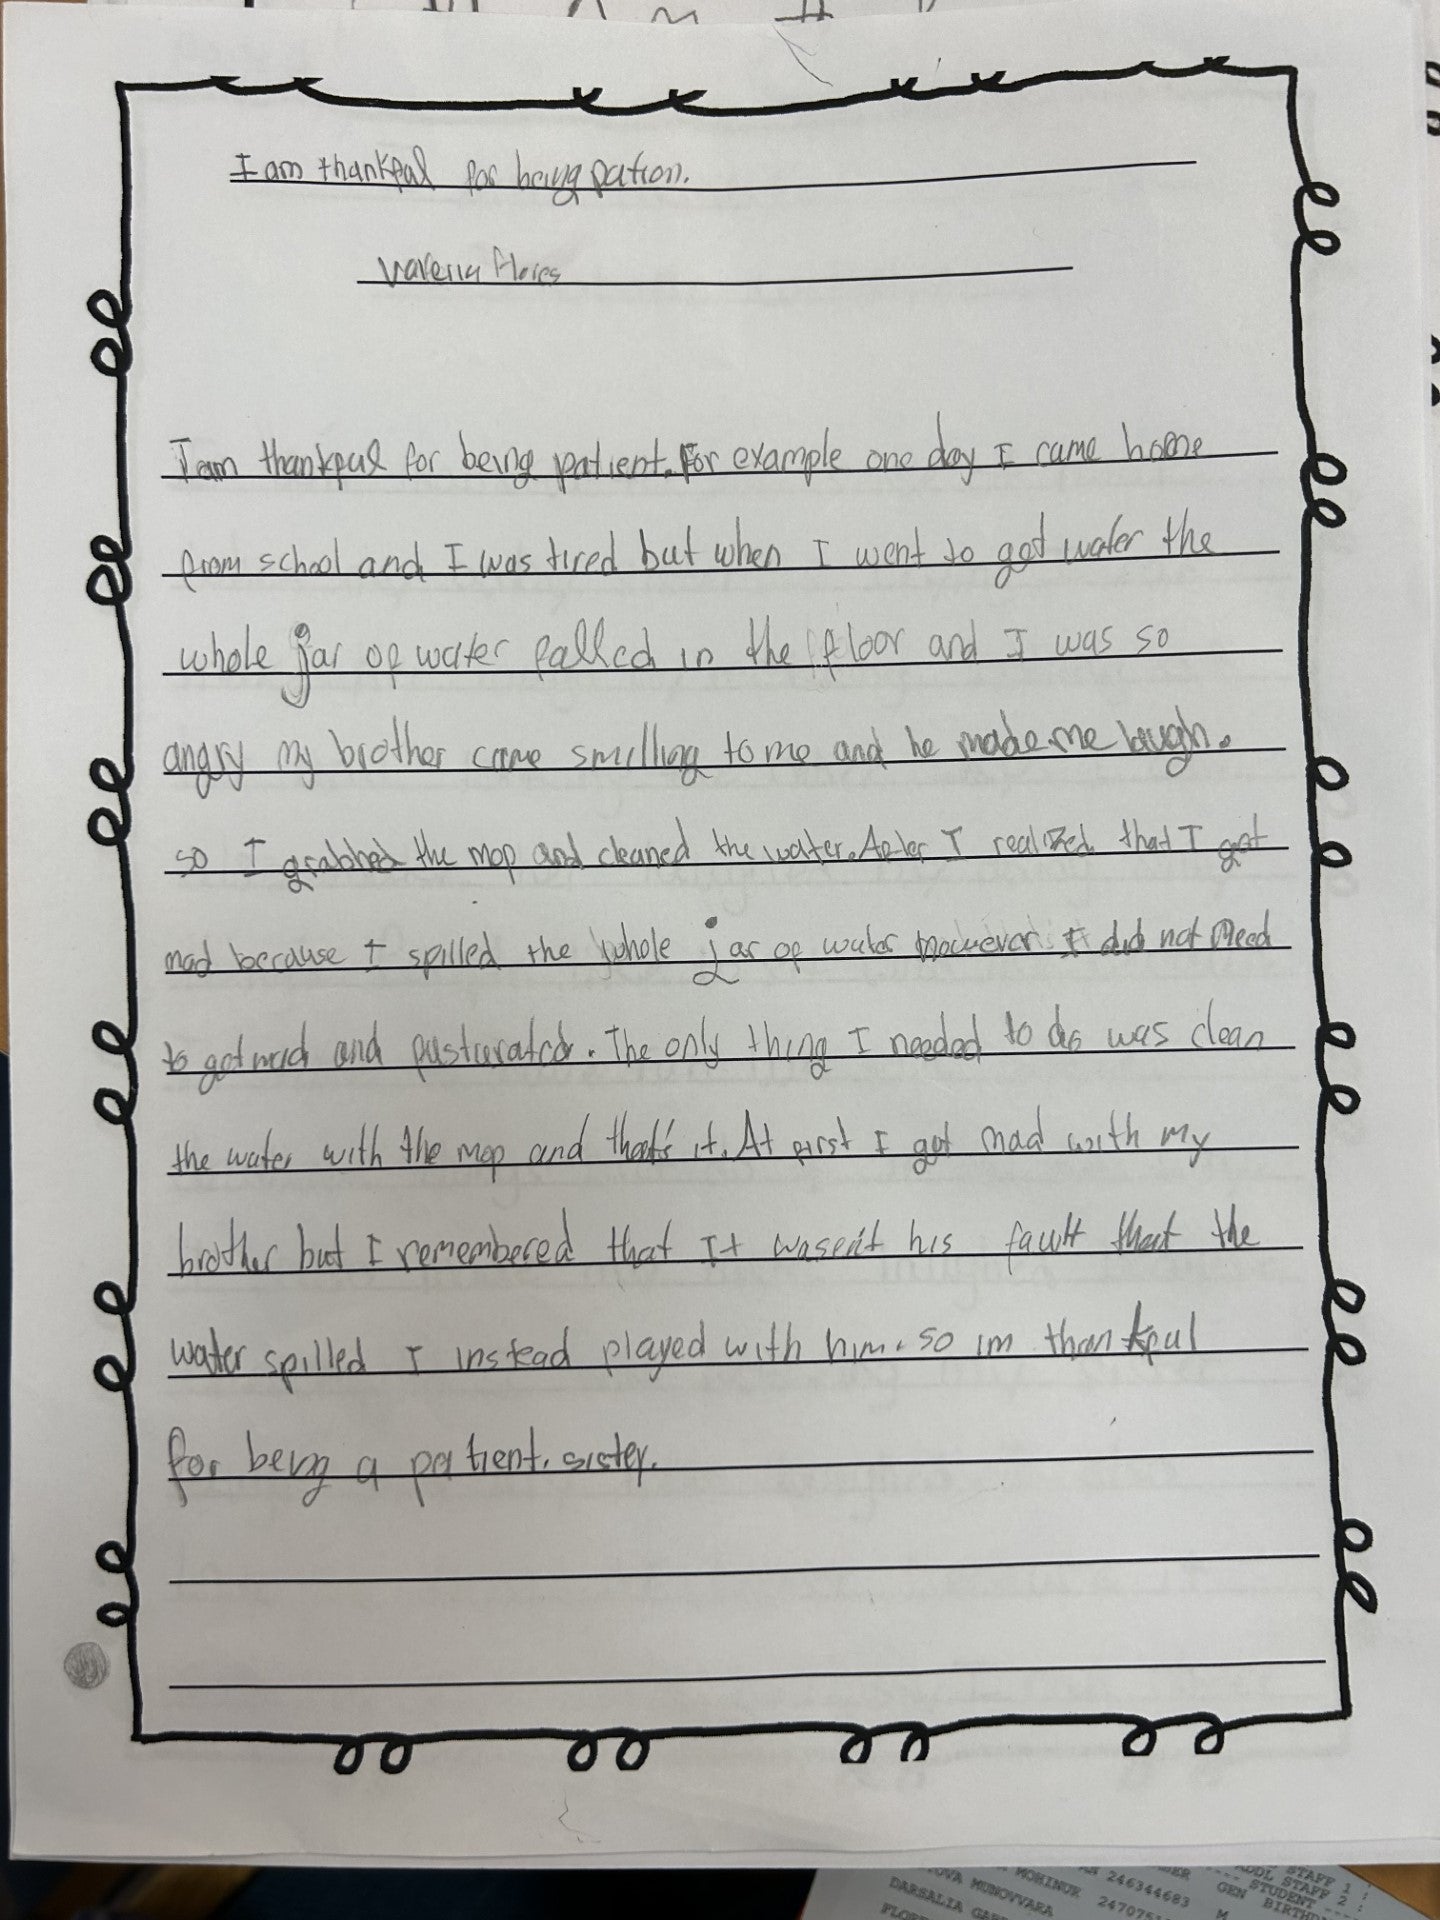 I am thankful for being pation.
Valeria Flores
I am thankful for being patient. For example one day I came home
from school and I was tired but when I went to get water the
whole jar of water falled in the floor and I was so
angry my brother came smilling to me and he made me laugh.
so I grabbed the mop and cleaned the water. After I realized that I got
mad because I spilled the whole jar of water however I did not need
to get mad and fusturated. The only thing I needed to do was clean
the water with the mop and that's it. At first I got mad with my
brother but I remembered that It wasen't his fault that the
water spilled I instead played with him. so im thankful
for being a patient. sister.
ADDL STAFF 1 :
STAFF 2 :
--- STUDENT ---
GEN BIRTHD
246344683 M
MOHINUR 247075
OVA MUNOVVARA
DARSALIA GAB
FLOR